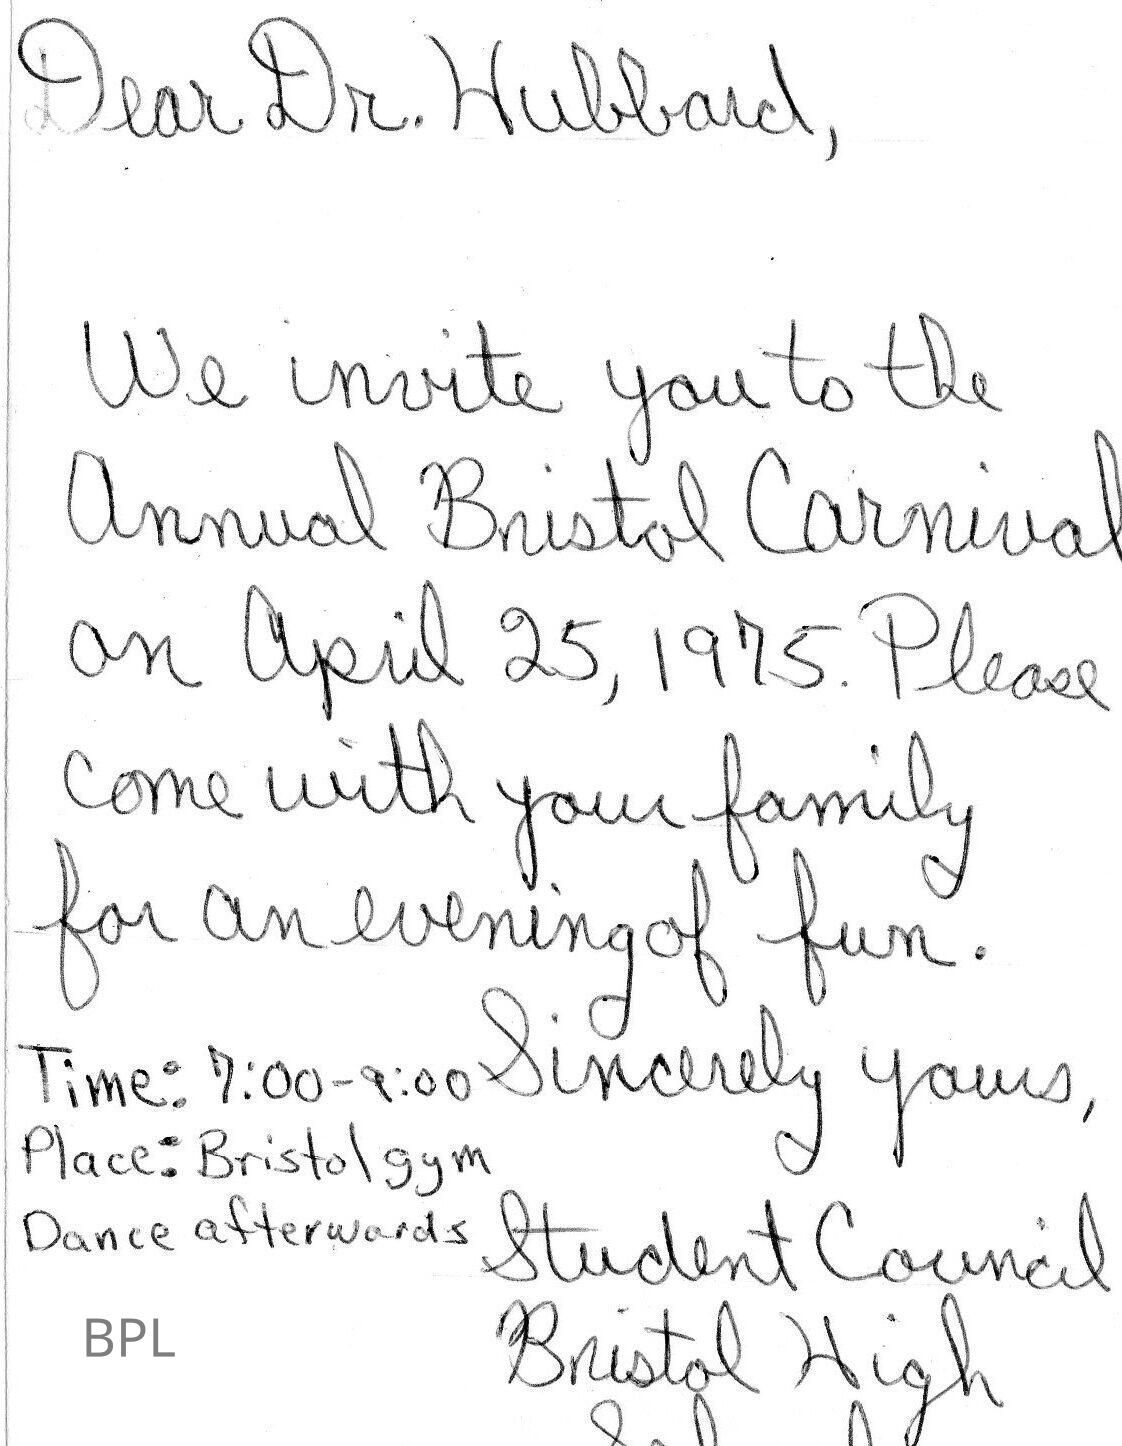 Dear Dr. Hubbard,
We invite you to the
Annual Bristol Carnival
on April 25, 1975. Please
come with your family
for an evening of fun.
Sincerely yours,
Time: 7:00-9:00
Place: Bristol gym
Dance afterwards
Student Council
Bristol High
BPL